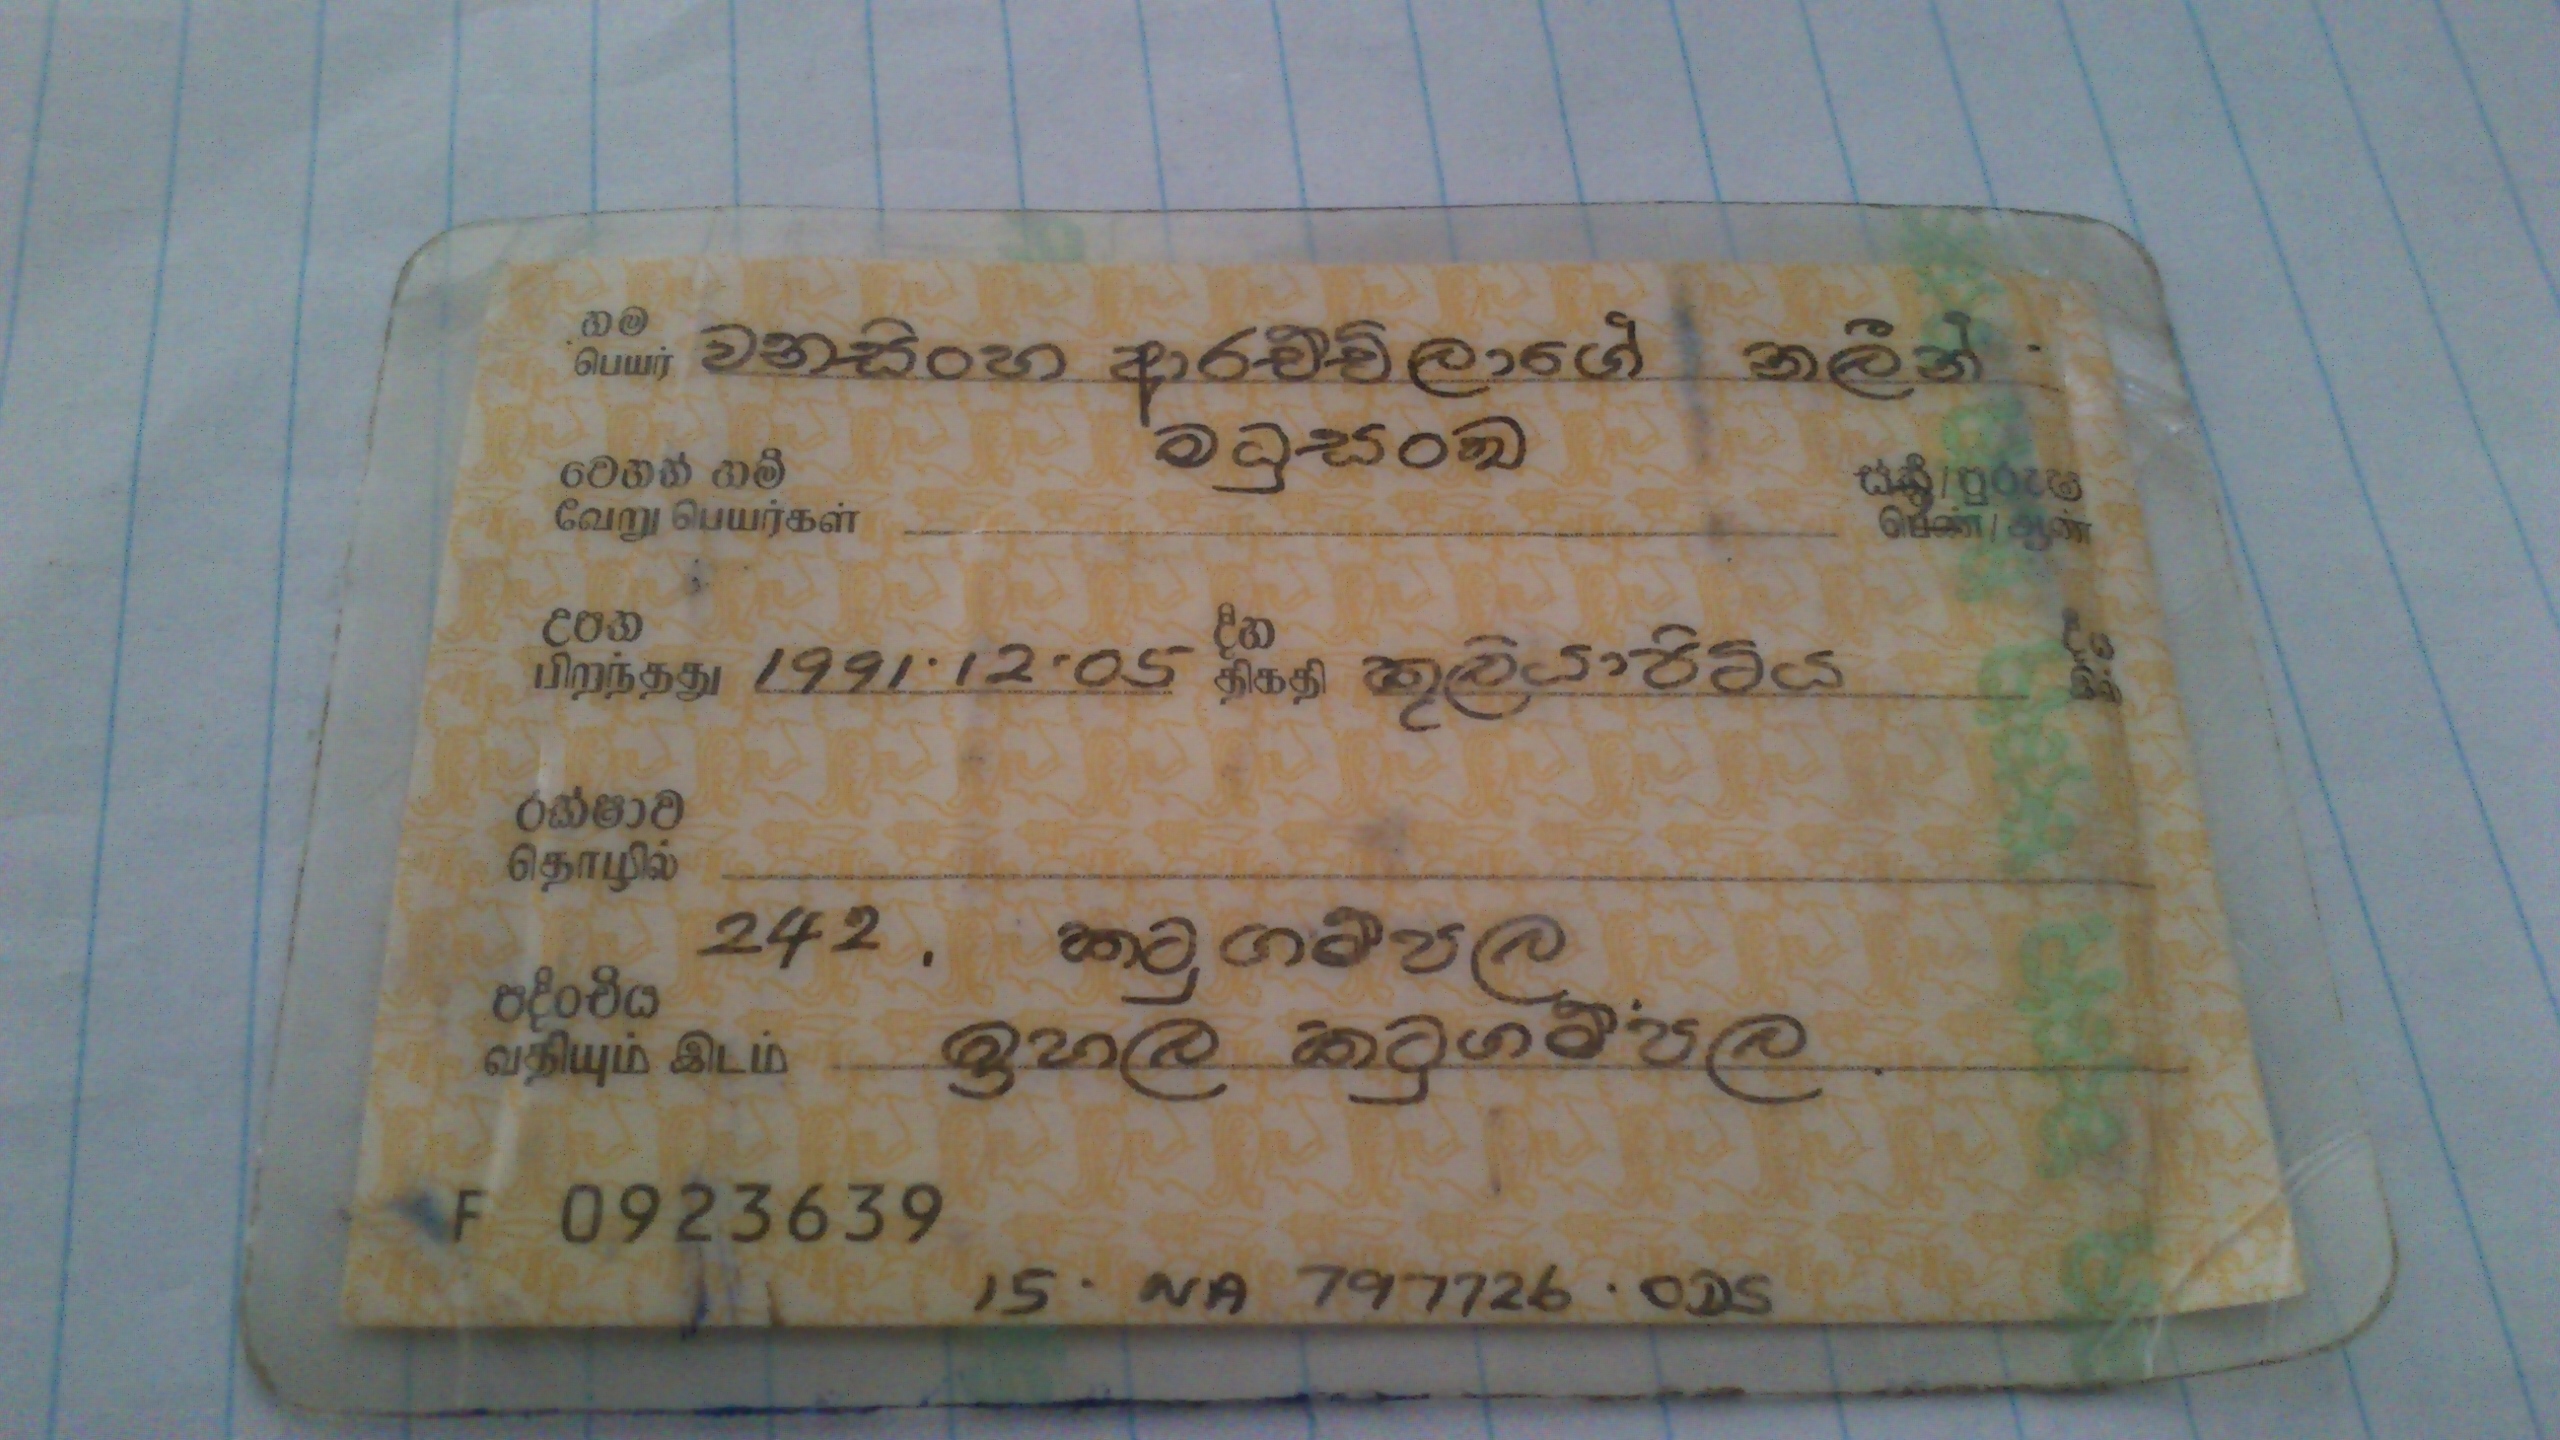 නම
பெயர் වනසිංහ ආරච්චිලාගේ නලීන්
මධුසංඛ
වෙනත් නම්
வேறு பெயர்கள்
ස්ත්‍රී/පුරුෂ
பெண்/ஆண்
උපත
பிறந்தது 1991.12.05
දින
திகதி කුලියාපිටිය
රක්ෂාව
தொழில்
242. කටුගම්පල
පදිංචිය
வதியும் இடம் ඉහල කටුගම්පල.
F 0923639
15. NA 797726.